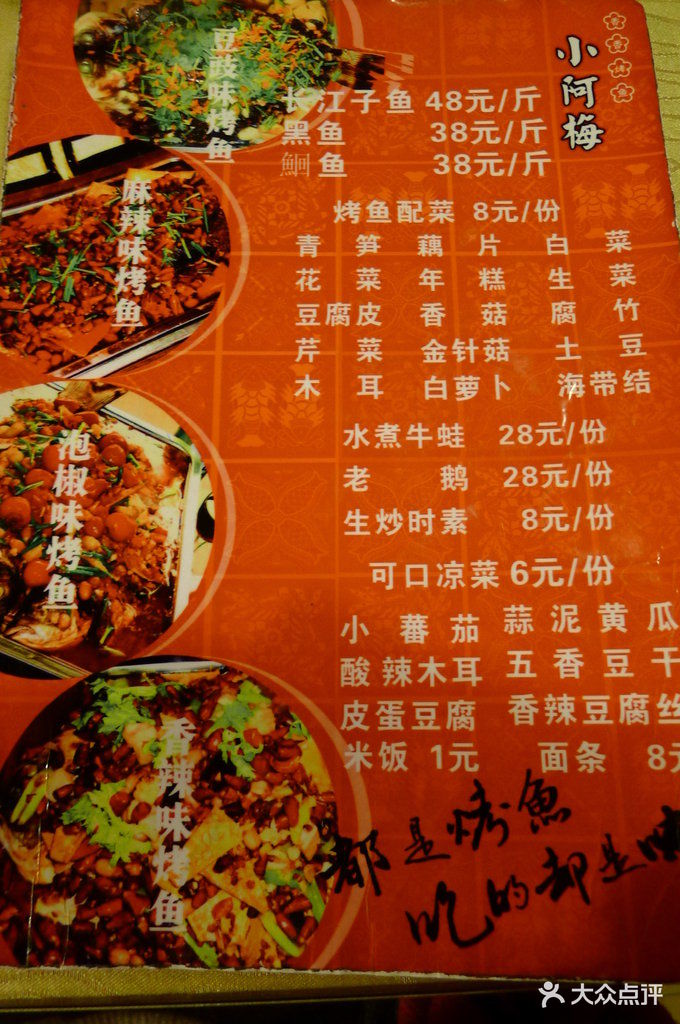 小阿梅
豆豉味烤鱼
麻辣味烤鱼
泡椒味烤鱼
香辣味烤鱼
长江子鱼 48元/斤
黑鱼 38元/斤
鮰鱼 38元/斤
烤鱼配菜 8元/份
青笋 藕片 白菜
花菜 年糕 生菜
豆腐皮 香菇 腐竹
芹菜 金针菇 土豆
木耳 白萝卜 海带结
水煮牛蛙 28元/份
老鹅 28元/份
生炒时素 8元/份
可口凉菜 6元/份
小蕃茄 蒜泥黄瓜
酸辣木耳 五香豆干
皮蛋豆腐 香辣豆腐丝
米饭 1元 面条 8元
都是烤魚
吃的却是味
大众点评